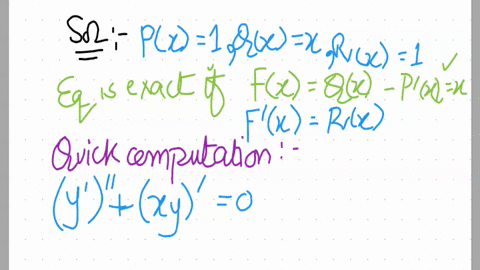 Sol:- P(x) = 1, Q(x) = x, R(x) = 1
Eq is exact if F(x) = Q(x) - P'(x) = x ✓
F'(x) = R(x)
Quick computation:-
(y')'' + (xy)' = 0